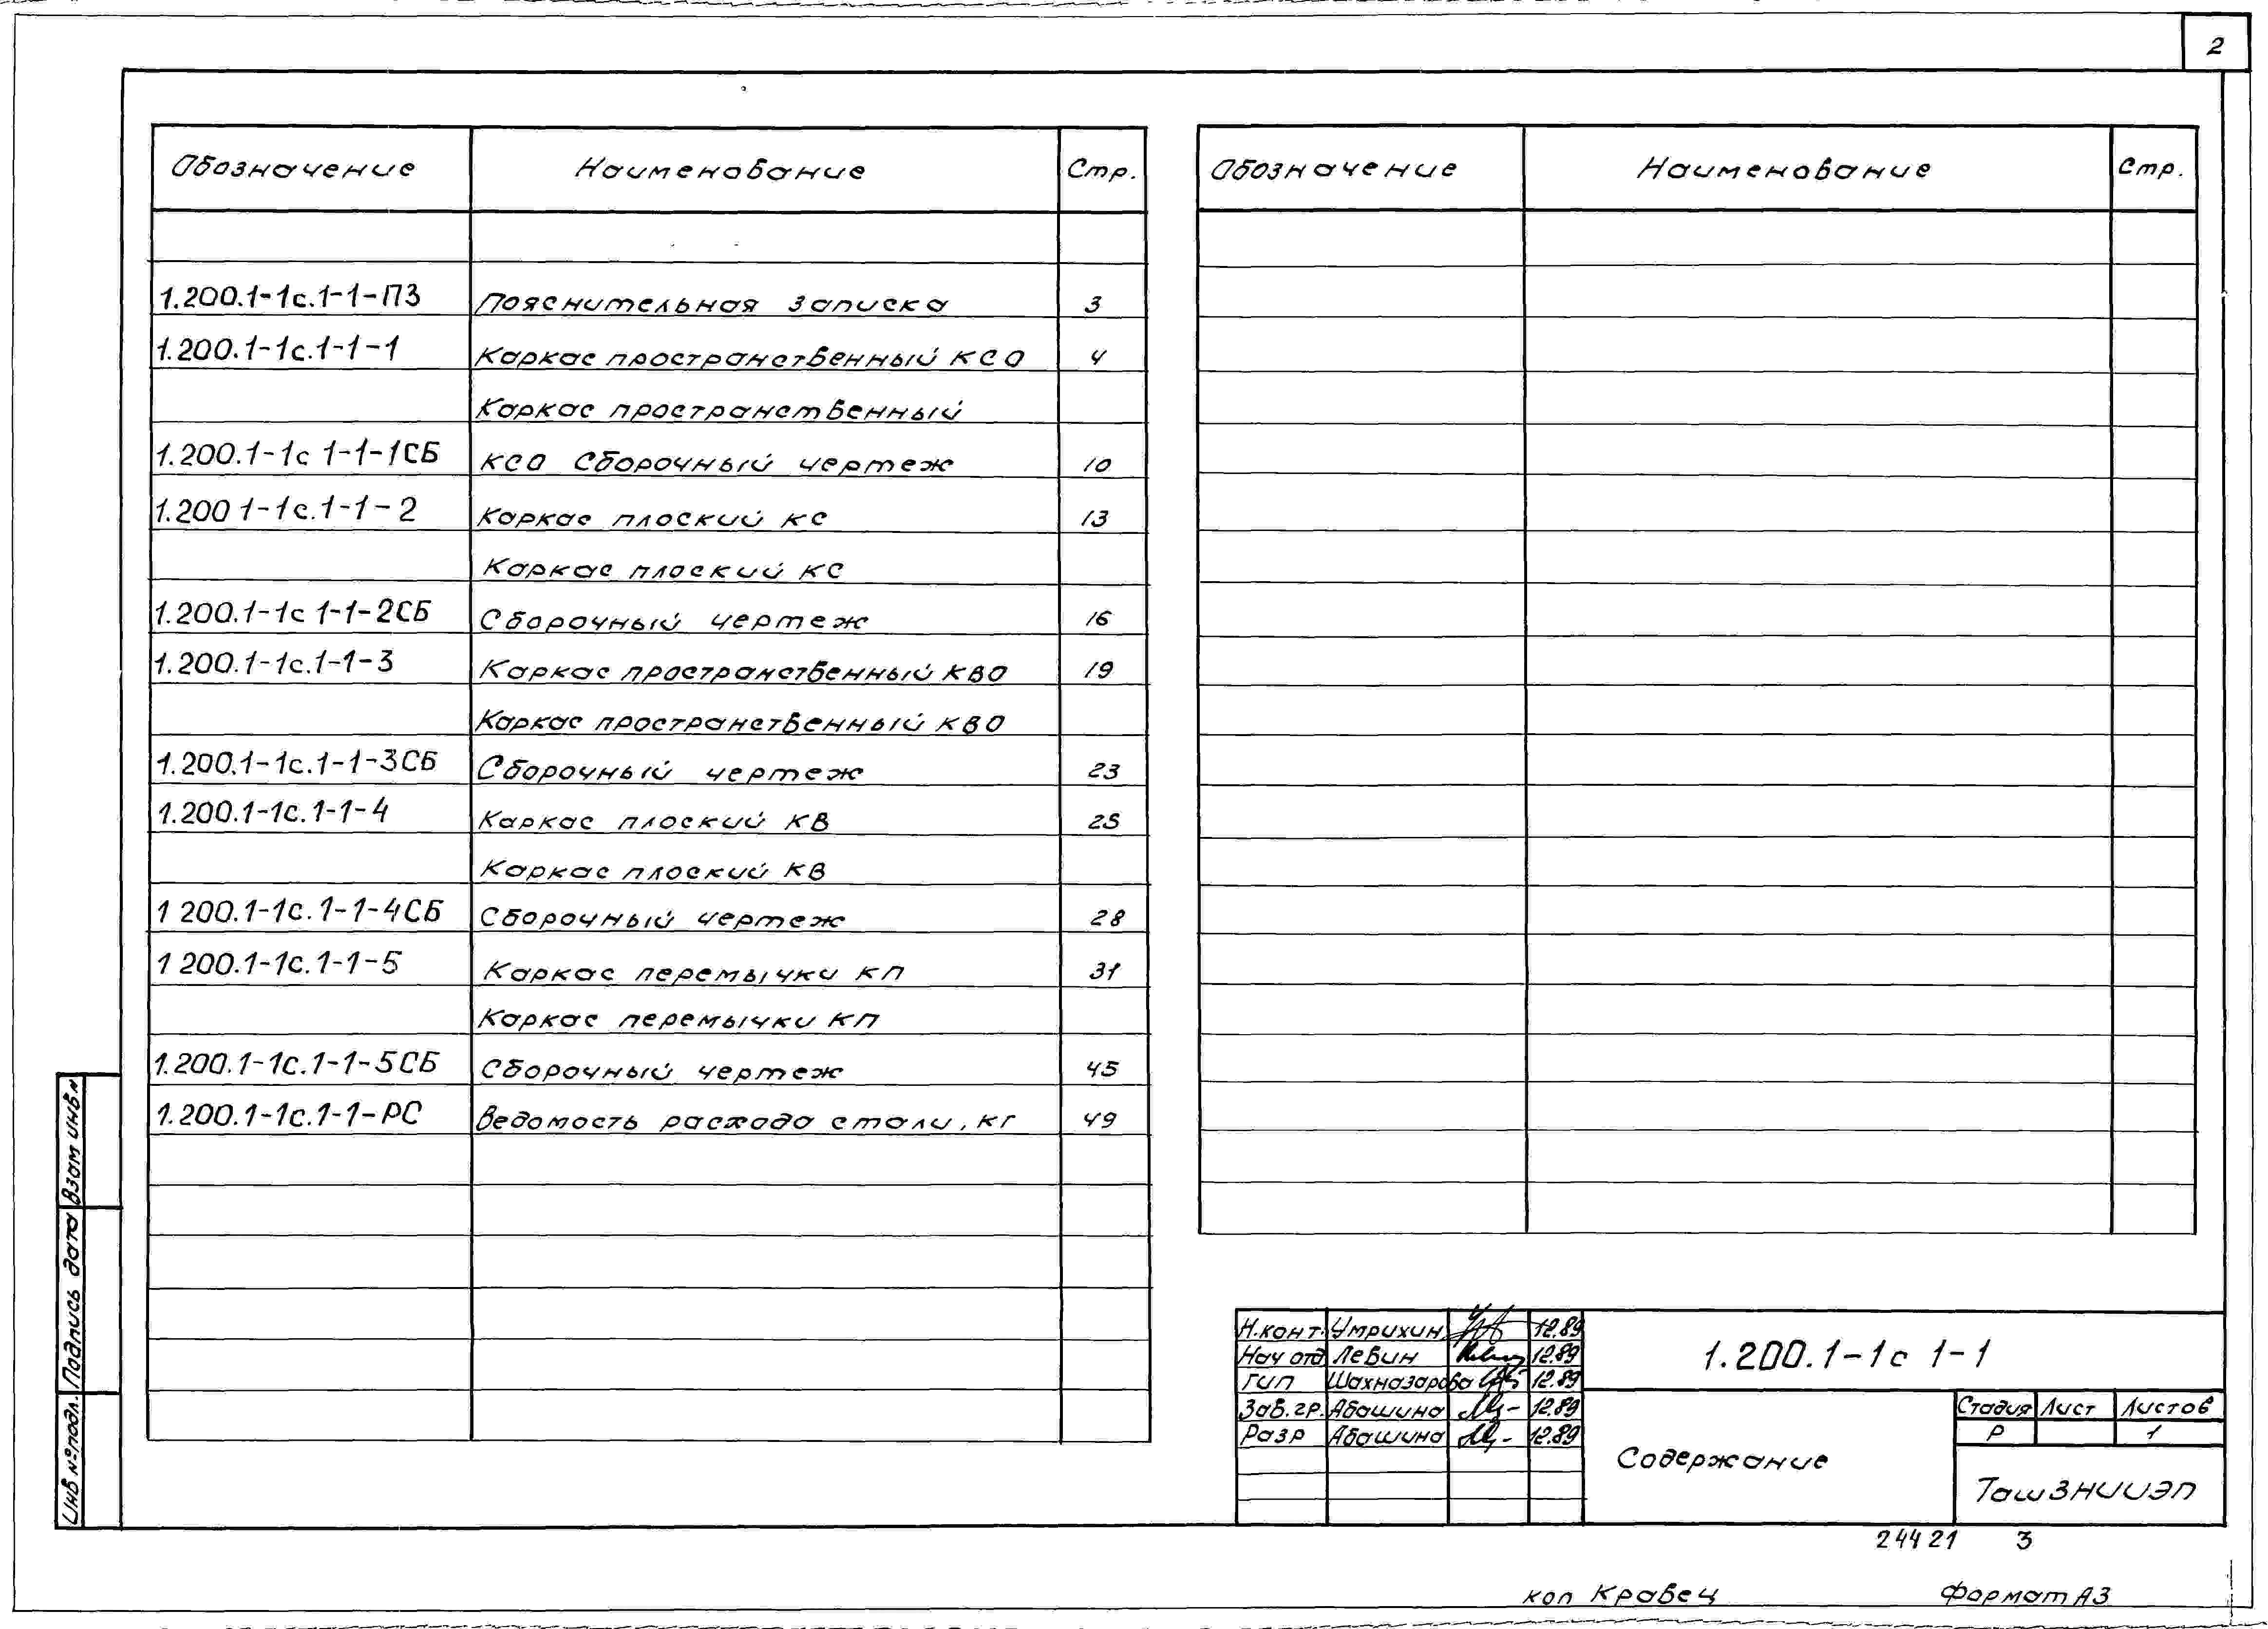 2
Обозначение Наименование Стр.
1.200.1-1с.1-1-ПЗ Пояснительная записка 3
1.200.1-1с.1-1-1 Каркас пространственный КСО 4
Каркас пространственный
1.200.1-1с 1-1-1СБ КСО Сборочный чертеж 10
1.200 1-1с.1-1-2 Каркас плоский КС 13
Каркас плоский КС
1.200.1-1с 1-1-2СБ Сборочный чертеж 16
1.200.1-1с.1-1-3 Каркас пространственный КВО 19
Каркас пространственный КВО
1.200.1-1с.1-1-3СБ Сборочный чертеж 23
1.200.1-1с.1-1-4 Каркас плоский КВ 25
Каркас плоский КВ
1 200.1-1с.1-1-4СБ Сборочный чертеж 28
1 200.1-1с.1-1-5 Каркас перемычки КП 31
Каркас перемычки КП
1.200.1-1с.1-1-5СБ Сборочный чертеж 45
1.200.1-1с.1-1-РС Ведомость расхода стали, кг 49
Обозначение Наименование Стр.
Взам инв.№
Подпись дата
Инв №подл.
Н.конт. Умрихин 12.89
Нач отд Левин 12.89
Гип Шахназарова 12.89
Зав.гр. Абашина 12.89
Разр Абашина 12.89
1.200.1-1с 1-1
Содержание
Стадия Лист Листов
Р 1
ТашЗНИИЭП
24421 3
коп Кравец Формат А3